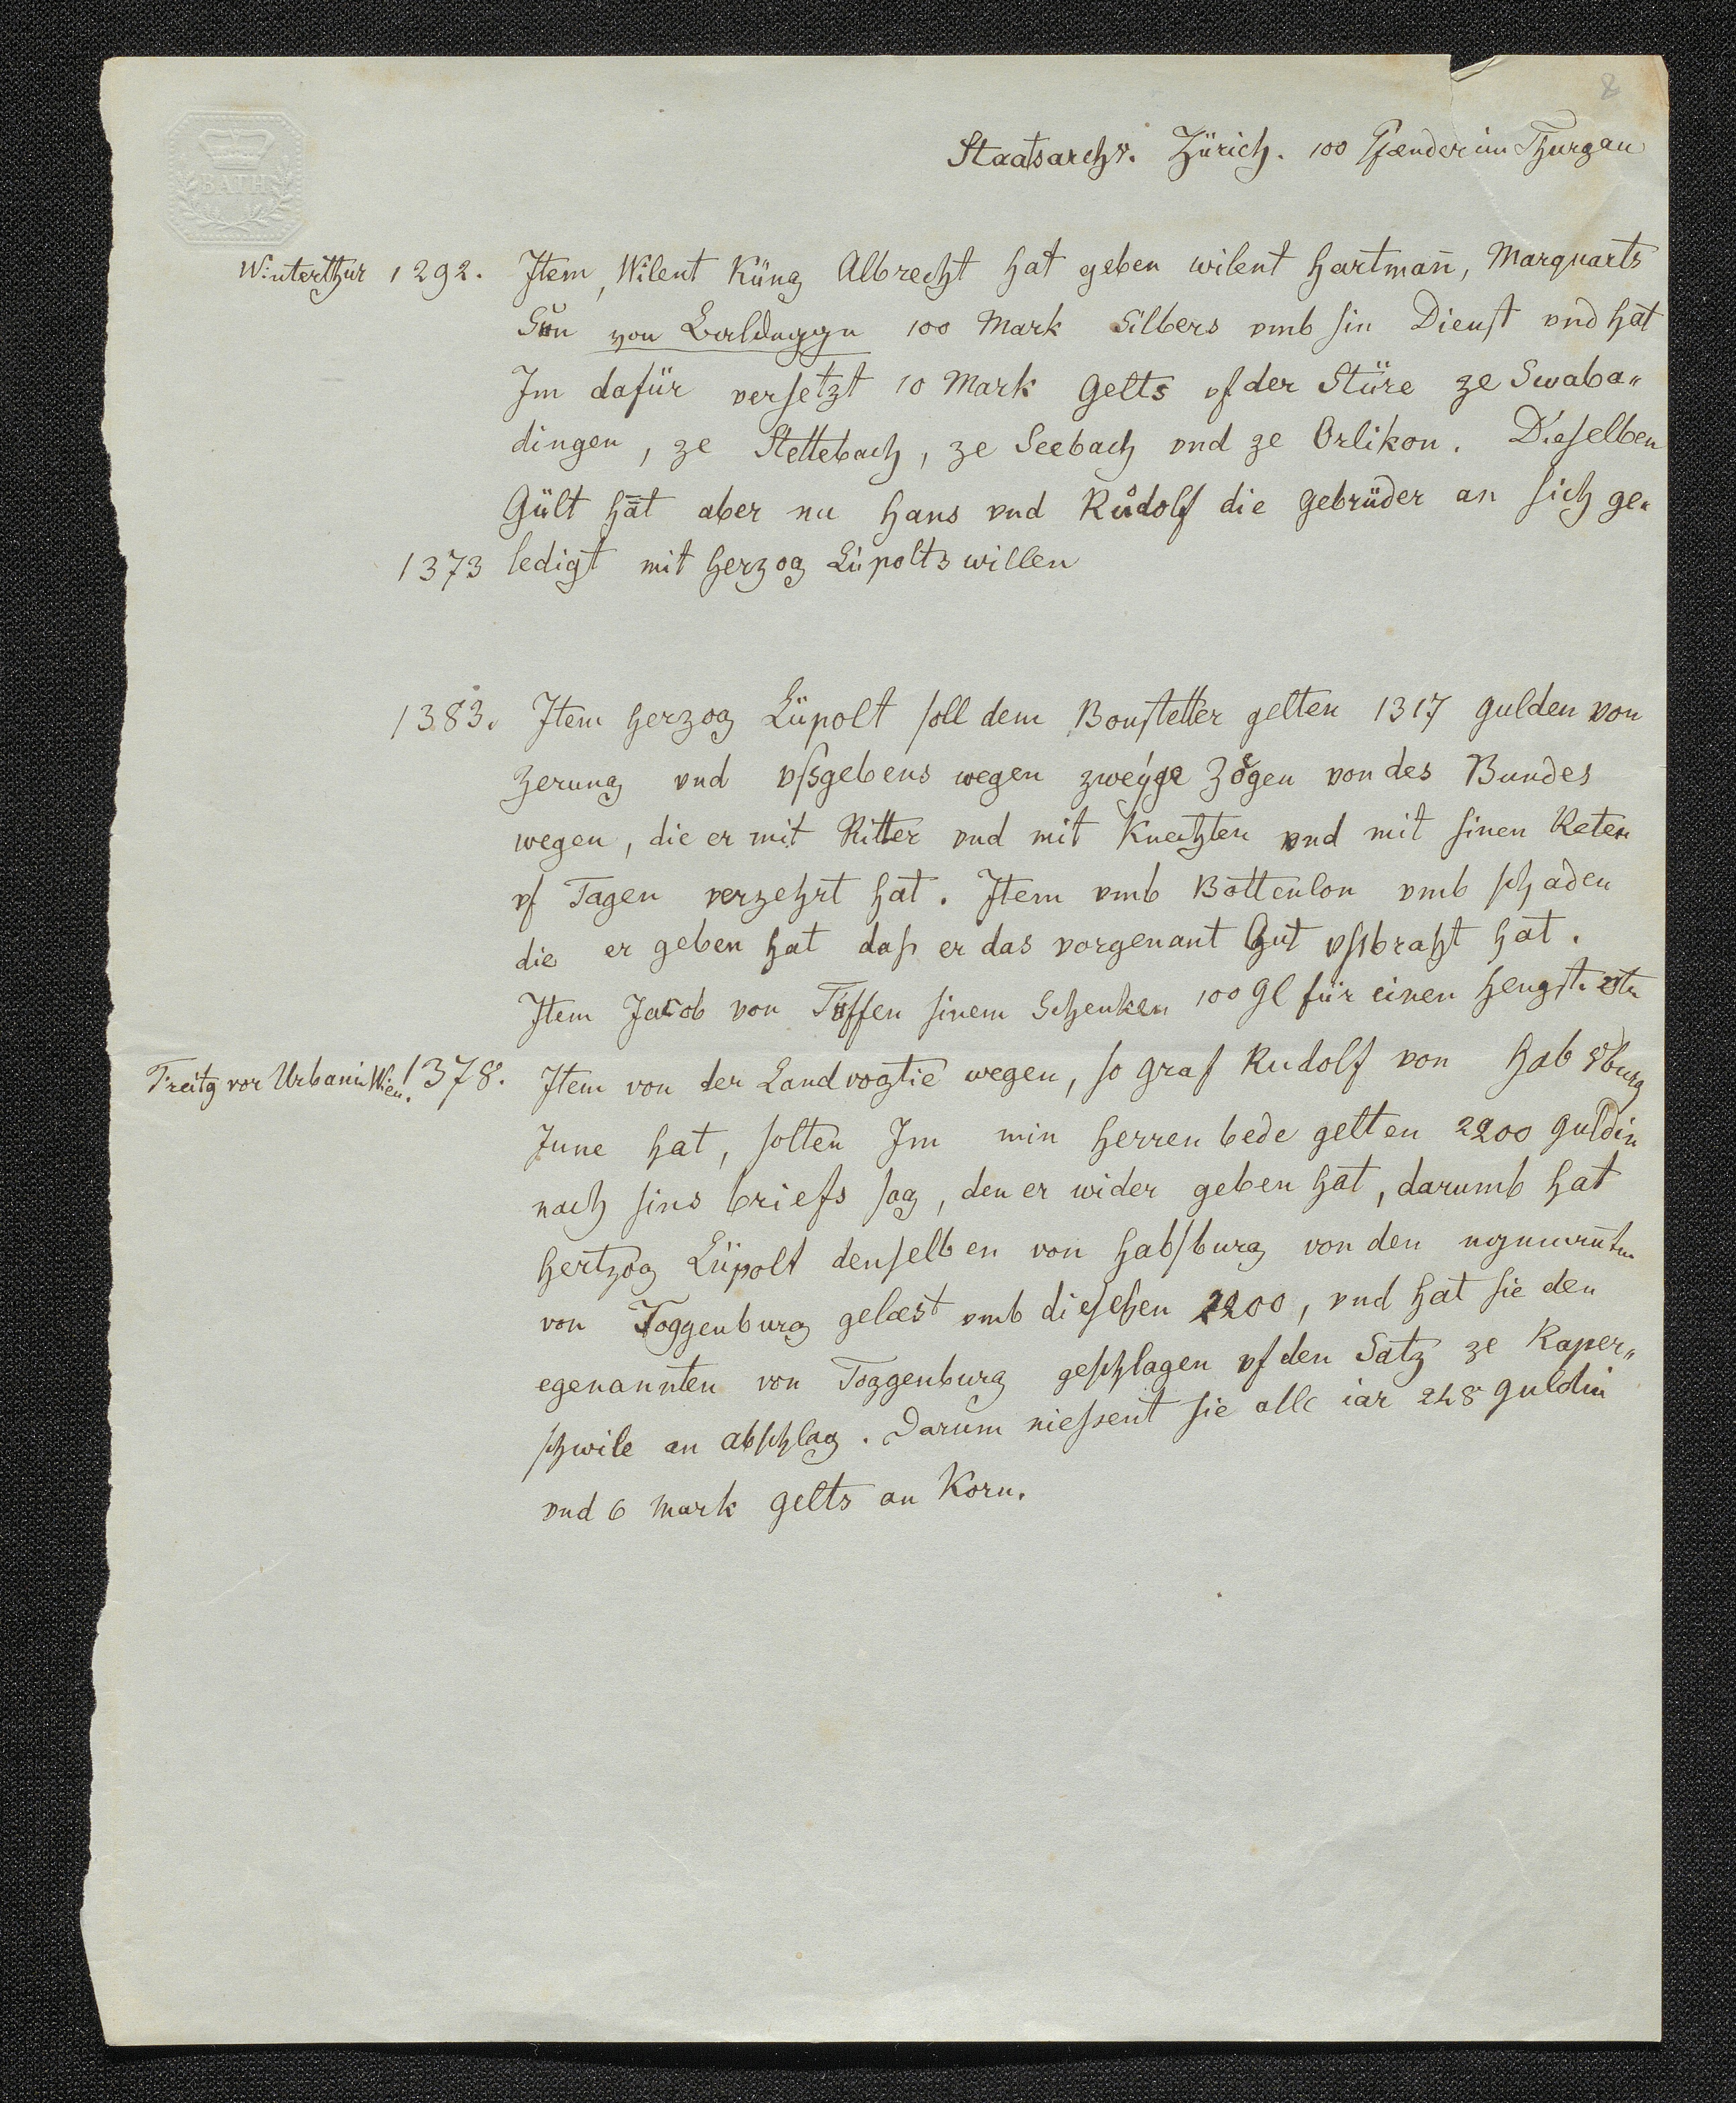 8
BATH
Staatsarchv. Zürich. 100 Pfænder im Thurgau
Winterthur 1292. Item, Wilent Küng Albrecht hat geben wilent Hartmañ, Marquarts
Sůn von Baldeggn 100 Mark Silbers vmb sin Dienst vnd hat
Im dafür versetzt 10 Mark Gelts vf der Stüre ze Swaba„
dingen, ze Stettebach, ze Seebach vnd ze Orlikon. Dieselben
Gült hāt aber nu Hans vnd Růdolf die Gebrüder an sich ge„
1373 ledigt mit Herzog Lüpolts willen
1383. Item Herzog Lüpolt soll dem Bonstetter gelten 1317 Gulden von
Zerung vnd vssgebens wegen zweyge Zögen von des Bundes
wegen, die er mit Ritter vnd mit Knechten vnd mit sinen Reten
vf Tagen verzehrt hat. Item vmb Bottenlon vmb schaden
die er geben hat dass er das vorgenant Gut vssbracht hat.
Item Jacob von Tüffen sinem Schenken 100 Gl für einen Hengst. etc
Freitg vor Urbani Wien. 1378. Item von der Landvogtie wegen, so Graf Rudolf von Habsburg
Inne hat, solten Im min Herren bede gelten 2200 Guldin
nach sins briefs sag, den er wider geben hat, darumb hat
Hertzog Lüpolt denselben von Habsburg von den
von Toggenburg gelœst vmb dieselben 2200, vnd hat sie den
egenannten von Toggenburg geschlagen vf den Satz ze Raper„
schwile an abschlag. Darum niessent sie alle iar 248 Guldin
vnd 6 Mark gelts an Korn.